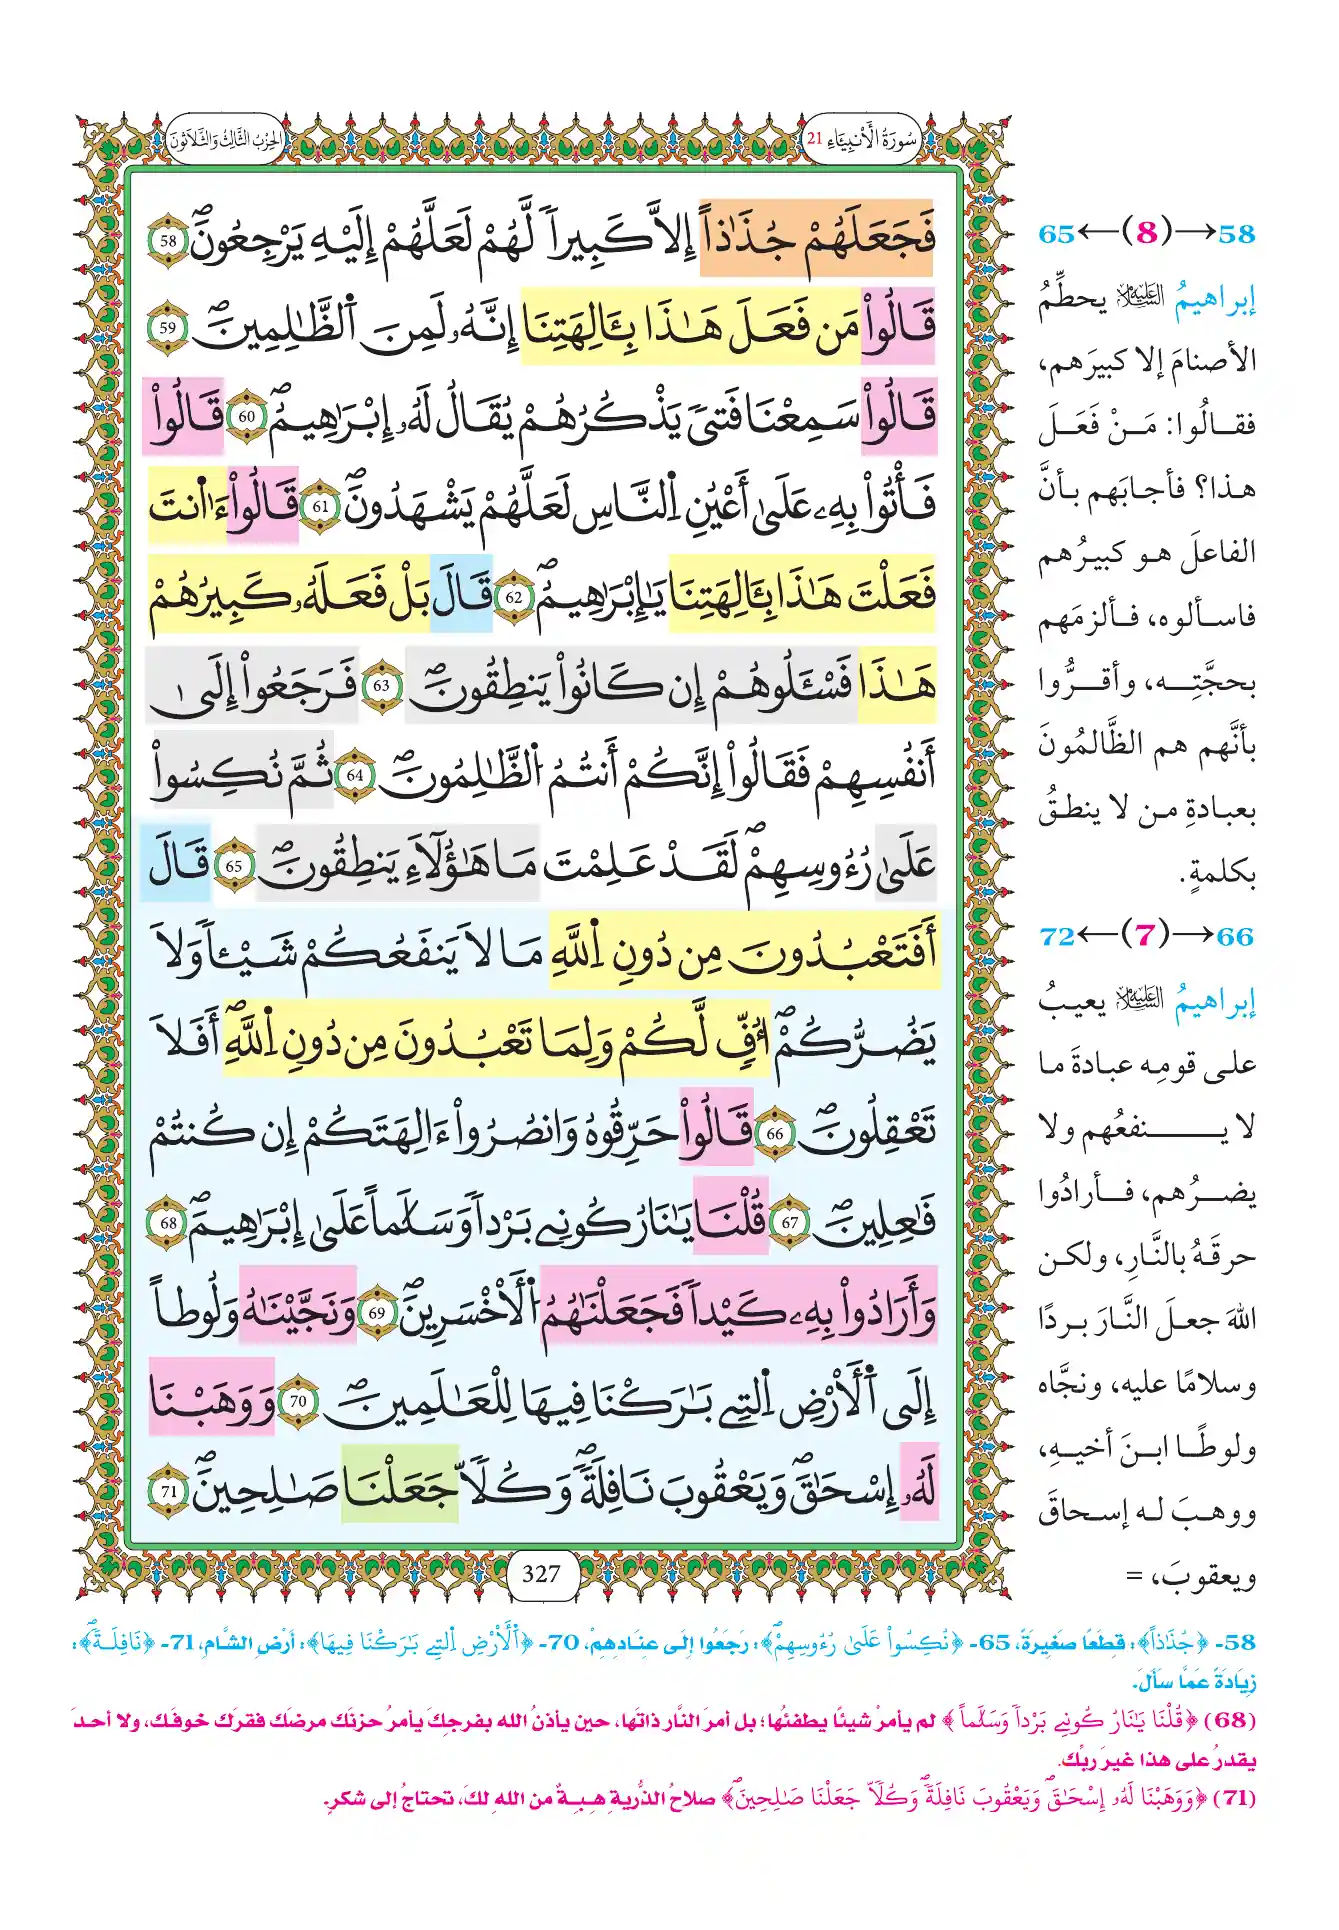 سُورَةُ الْأَنبِيَاءِ 21
الحِزْبُ الثَّالِثُ وَالثَّلَاثُونَ
فَجَعَلَهُمْ جُذَٰذاً إِلَّا كَبِيراً لَّهُمْ لَعَلَّهُمْ إِلَيْهِ يَرْجِعُونَۖ 58
قَالُواْ مَن فَعَلَ هَٰذَا بِـَٔالِهَتِنَا إِنَّهُۥ لَمِنَ اَ۬لظَّٰلِمِينَۖ 59
قَالُواْ سَمِعْنَا فَتىٗ يَذْكُرُهُمْ يُقَالُ لَهُۥ إِبْرَٰهِيمُۖ 60 قَالُواْ
فَأْتُواْ بِهِۦ عَلَىٰ أَعْيُنِ اِ۬لنَّاسِ لَعَلَّهُمْ يَشْهَدُونَۖ 61 قَالُواْ ءَا۬نتَ
فَعَلْتَ هَٰذَا بِـَٔالِهَتِنَا يَٰإِبْرَٰهِيمُۖ 62 قَالَ بَلْ فَعَلَهُۥ كَبِيرُهُمْ
هَٰذَا فَسْـَٔلُوهُمْ إِن كَانُواْ يَنطِقُونَۖ 63 فَرَجَعُواْ إِلَىٰ
أَنفُسِهِمْ فَقَالُواْ إِنَّكُمْ أَنتُمُ اُ۬لظَّٰلِمُونَۖ 64 ثُمَّ نُكِسُواْ
عَلَىٰ رُءُوسِهِمْۖ لَقَدْ عَلِمْتَ مَا هَٰؤُلَآءِ يَنطِقُونَۖ 65 قَالَ
أَفَتَعْبُدُونَ مِن دُونِ اِ۬للَّهِ مَا لَا يَنفَعُكُمْ شَيْـٔاً وَلَا
يَضُرُّكُمْۖ أُفّٖ لَّكُمْ وَلِمَا تَعْبُدُونَ مِن دُونِ اِ۬للَّهِۖ أَفَلَا
تَعْقِلُونَۖ 66 قَالُواْ حَرِّقُوهُ وَانصُرُواْ ءَالِهَتَكُمْ إِن كُنتُمْ
فَٰعِلِينَۖ 67 قُلْنَا يَٰنَارُ كُونِے بَرْداً وَسَلَٰماً عَلَىٰ إِبْرَٰهِيمَۖ 68
وَأَرَادُواْ بِهِۦ كَيْداً فَجَعَلْنَٰهُمُ اُ۬لْأَخْسَرِينَۖ 69 وَنَجَّيْنَٰهُ وَلُوطاً
إِلَى اَ۬لْأَرْضِ اِ۬لتِے بَٰرَكْنَا فِيهَا لِلْعَٰلَمِينَۖ 70 وَوَهَبْنَا
لَهُۥ إِسْحَٰقَۖ وَيَعْقُوبَ نَافِلَةٗۖ وَكُلّاً جَعَلْنَا صَٰلِحِينَۖ 71
327
58→(8)←65
إبراهيمُ عليه السلام يحطِّمُ
الأصنامَ إلا كبيرَهم،
فقالُوا: مَنْ فَعَلَ
هذا؟ فأجابَهم بأنَّ
الفاعلَ هو كبيرُهم
فاسألوه، فألزمَهم
بحجَّتِه، وأقرُّوا
بأنَّهم هم الظَّالمُونَ
بعبادةِ من لا ينطقُ
بكلمةٍ.
66→(7)←72
إبراهيمُ عليه السلام يعيبُ
على قومِه عبادةَ ما
لا ينفعُهم ولا
يضرُهم، فأرادُوا
حرقَهُ بالنَّارِ، ولكن
اللهَ جعلَ النَّارَ بردًا
وسلامًا عليه، ونجَّاه
ولوطًا ابنَ أخيهِ،
ووهبَ له إسحاقَ
ويعقوبَ، =
58- ﴿جُذَٰذاً﴾: قِطَعًا صَغِيرَةً، 65- ﴿نُكِسُواْ عَلَىٰ رُءُوسِهِمْۖ﴾: رَجَعُوا إِلَى عِنَادِهِمْ، 70- ﴿اَ۬لْأَرْضِ اِ۬لتِے بَٰرَكْنَا فِيهَا﴾: أَرْضِ الشَّامِ، 71- ﴿نَافِلَةٗۖ﴾:
زِيَادَةً عَمَّا سَأَلَ.
(68) ﴿قُلْنَا يَٰنَارُ كُونِے بَرْداً وَسَلَٰماً﴾ لم يأمرْ شيئًا يطفئُها؛ بل أمرَ النَّار ذاتَها، حين يأذنُ الله بفرجِكَ يأمرُ حزنَك مرضَك فقرَك خوفَك، ولا أحدَ
يقدرُ على هذا غيرَ ربِّك.
(71) ﴿وَوَهَبْنَا لَهُۥ إِسْحَٰقَۖ وَيَعْقُوبَ نَافِلَةٗۖ وَكُلّاً جَعَلْنَا صَٰلِحِينَۖ﴾ صلاحُ الذُّريةِ هِبةٌ من الله لكَ، تحتاجُ إلى شكرٍ.